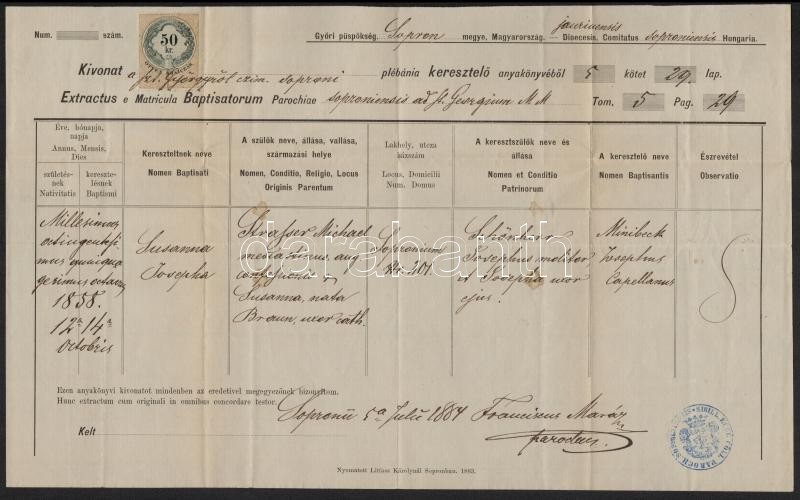 Num. szám.
50
kr.
Győri püspökség. Sopron megye. Magyarország.
jaurinensis
Dioecesis. Comitatus soproniensis Hungaria.
Kivonat a szt. Györgyről czim. soproni plébánia keresztelő anyakönyvéből 5 kötet 29. lap.
Extractus e Matricula Baptisatorum Parochiae soproniensis ad St. Georgium M M Tom. 5 Pag. 29
Éve, hónapja, napja
Annus, Mensis, Dies
születés-nek
Nativitatis
keresztelésnek
Baptismi
Kereszteltnek neve
Nomen Baptisati
A szülők neve, állása, vallása, származási helye
Nomen, Conditio, Religio, Locus Originis Parentum
Lakhely, utcza házszám
Locus, Domicilii Num. Domus
A keresztszülők neve és állása
Nomen et Conditio Patrinorum
A keresztelő neve
Nomen Baptisantis
Észrevétel
Observatio
Millesimus
octingentesi
mus quinqua
gesimus octavus
1858.
12a 14a
octobris
Susanna
Josepha
Strasser Michael
aug
confessionis
Susanna, nata
Braun, uxor cath.
Sopronium
Nr. 201.
Josephus molitor
et Josepha uxor
ejus.
Minibeck
Josephus
Capellanus
darabanth
Ezen anyakönyvi kivonatot mindenben az eredetivel megegyezőnek bizonyítom.
Hunc extractum cum originali in omnibus concordare testor.
Kelt Sopronii 5a Julii 1884 Franciscus Maráz
parochus.
Nyomatott Litfass Károlynál Sopronban. 1883.